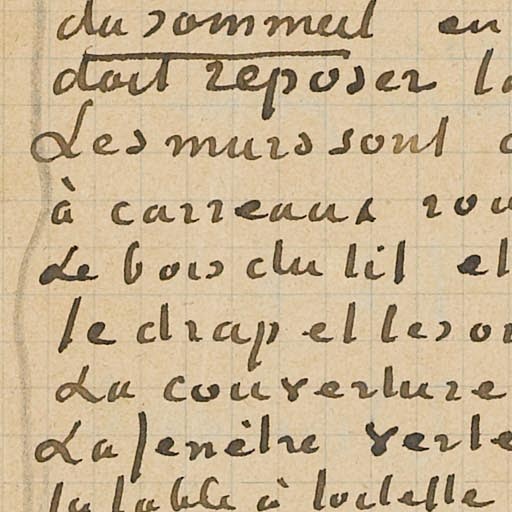 du sommeil en
doit reposer la
Les murs sont
à carreaux rou
Le bois du lit et
le drap et les or
La couverture
La fenêtre verte
la table à toilette